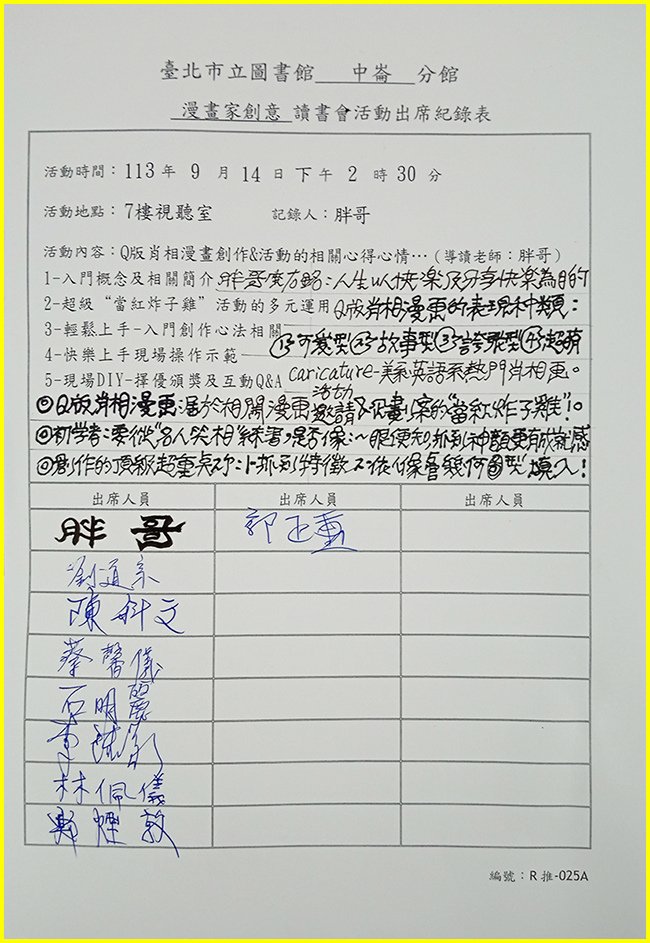 臺北市立圖書館 中崙 分館
漫畫家創意 讀書會活動出席紀錄表
活動時間：113年 9 月 14 日下午 2 時 30 分
活動地點：7樓視聽室 記錄人：胖哥
活動內容：Q版肖相漫畫創作&活動的相關心得心情…（導讀老師：胖哥）
1-入門概念及相關簡介 胖哥簡略：人生以快樂及分享快樂為目的
2-超級“當紅炸子雞”活動的多元運用 Q版肖相漫画的表現種類：
3-輕鬆上手-入門創作心法相關 ①可愛型②故事型③誇張型④超萌
4-快樂上手現場操作示範
5-現場DIY-擇優頒獎及互動Q&A caricature-美系英語系熱門肖相画。
◎Q版肖相漫画活於相關漫画活動邀請及企劃案的“當紅炸子雞”!。
◎初学者：要從“名人笑相”練習，是否像：一眼便知，抓到神韻更有成就感
◎創作的頂級超重点：抓到特徵 幾何圖型 填入！
出席人員 出席人員 出席人員
胖哥 郭正重
劉道宗
陳斜文
蔡馨儀
石明麗
李
林佩儀
鄭煙敦
編號：R 推-025A